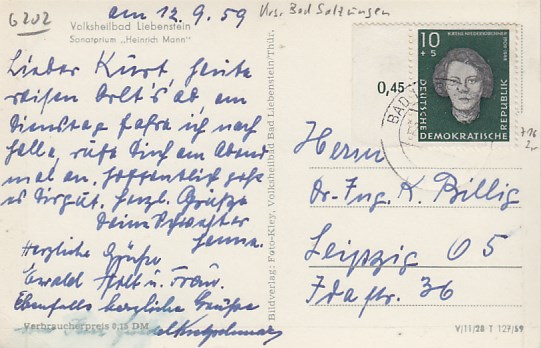 G202
am 12.9.59 Krs. Bad Salzungen
Volksheilbad Liebenstein
Sanatorium „Heinrich Mann"
Lieber Kurt, heute
reisen Arlt's ab, am
Dienstag fahre ich nach
Halle, rufe Dich am Abend
mal an. Hoffentlich geht
es Dir gut. Herzl. Grüße
Deine Schwester
Hanna.
Herzliche Grüße
Ewald Arlt u. Frau.
Ebenfalls herzliche Grüße
Verbraucherpreis 0,15 DM
Bildverlag: Foto-Kley, Volksheilbad Bad Liebenstein/Thür.
0,45
10
+5
DEUTSCHE
DEMOKRATISCHE
REPUBLIK
BAD
Herrn
Dr.-Ing. K. Billig
Leipzig O 5
Idastr. 36
V/11/28 T 129/59